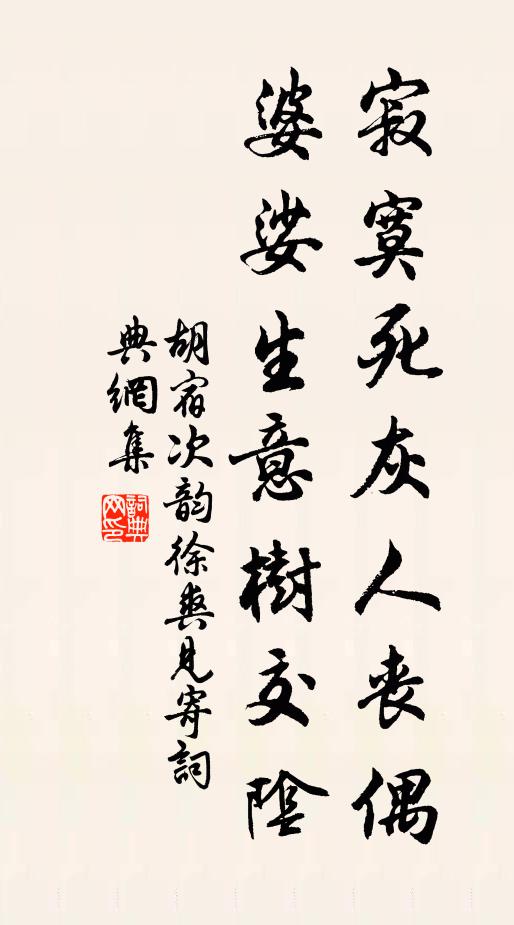 寂寞死灰人喪偶
婆娑生意樹交陰
胡宿次韵徐爽見寄詞
典網集
詞典網印